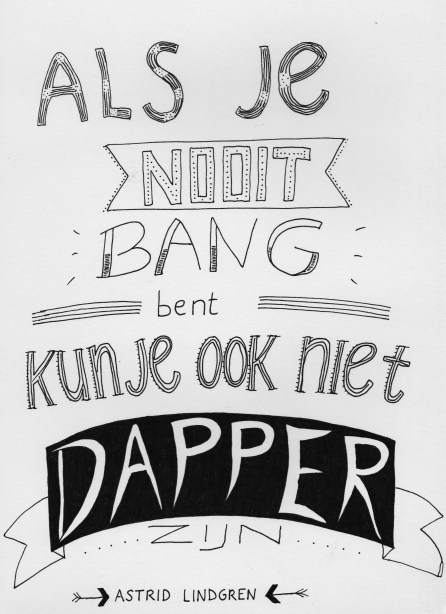 ALS JE
NOOIT
BANG
bent
KUNJE OOK NIET
DAPPER
ZIJN
ASTRID LINDGREN